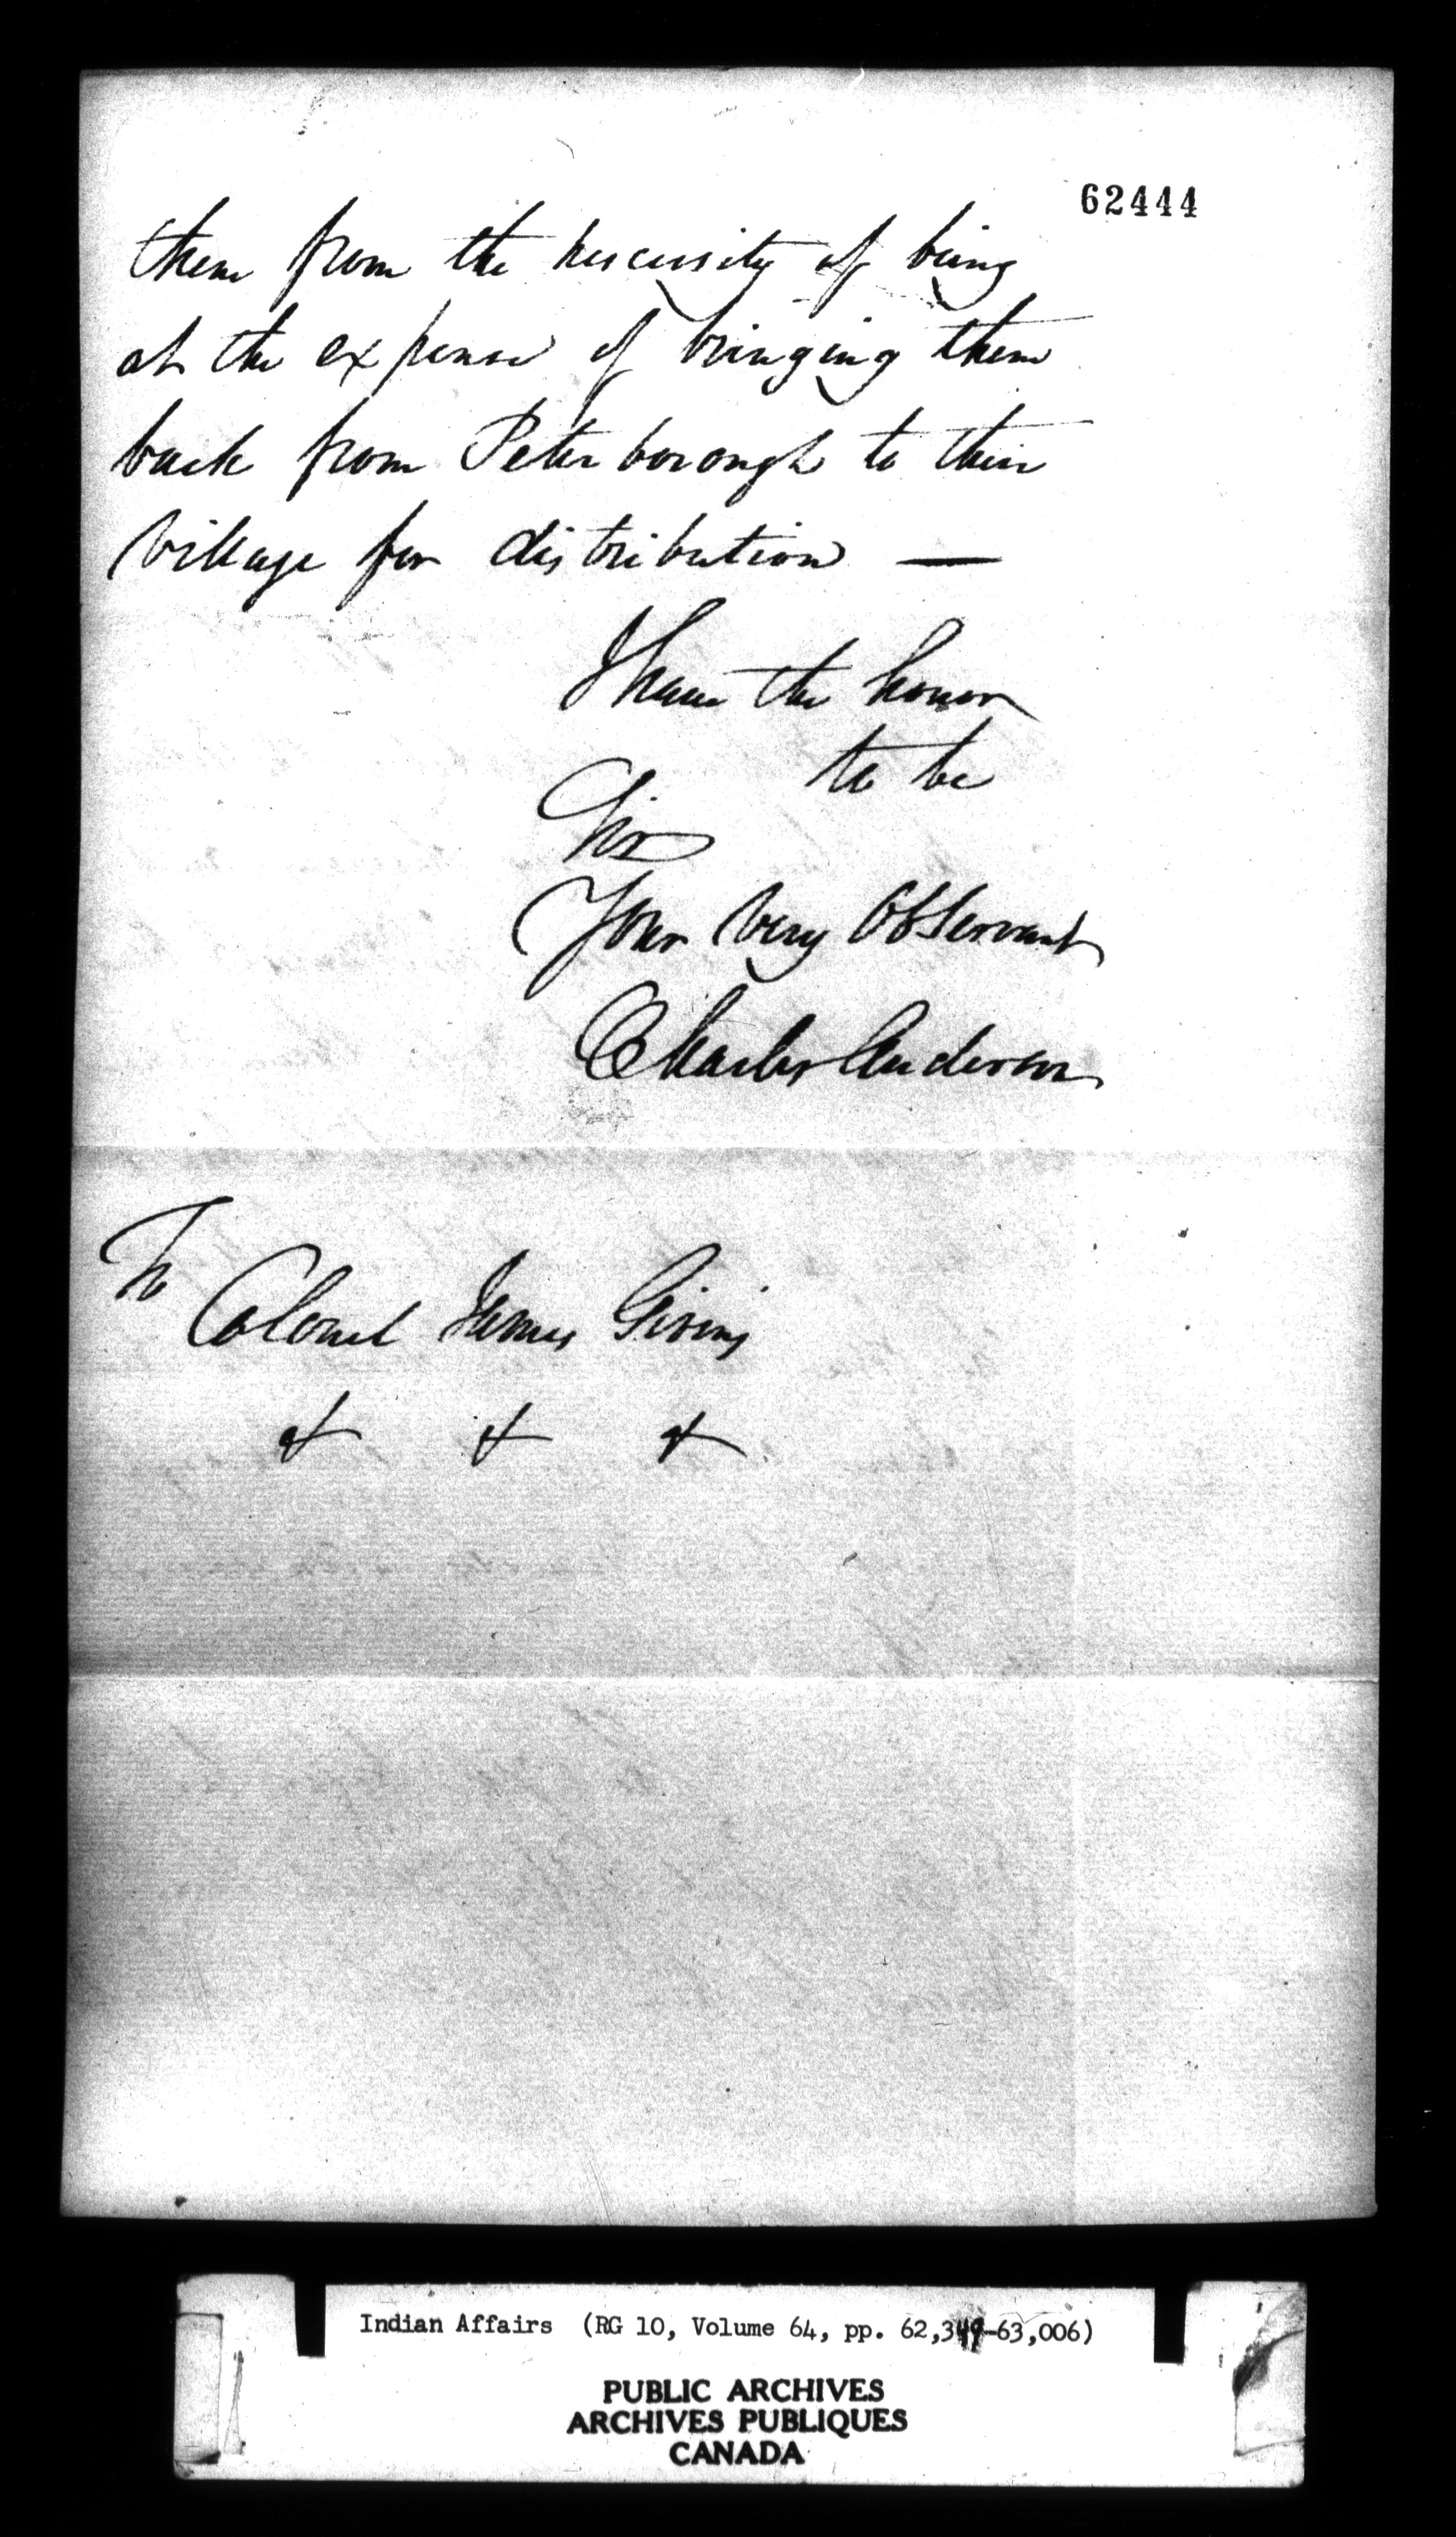 62444
them from the nescessity of being
at the expense of bringing them
back from Peterborough to their
Village for distribution —
I have the honor
to be
Sir
Your Very Obt Servant
Charles Anderson
To
Colonel James Givins
& & &
Indian Affairs (RG 10, Volume 64, pp. 62,349-63,006)
PUBLIC ARCHIVES
ARCHIVES PUBLIQUES
CANADA